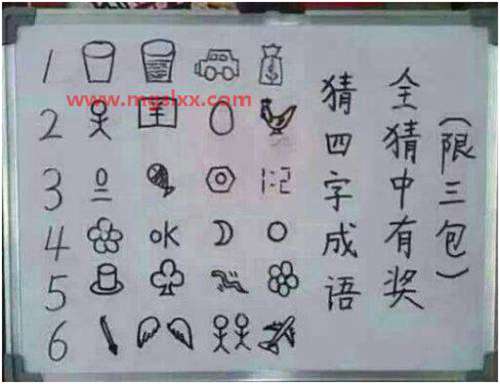 1
www.mgslxx.com
2 王
3 1:2
4 OK
5
6
(限三包)
全猜中有奖
猜四字成语